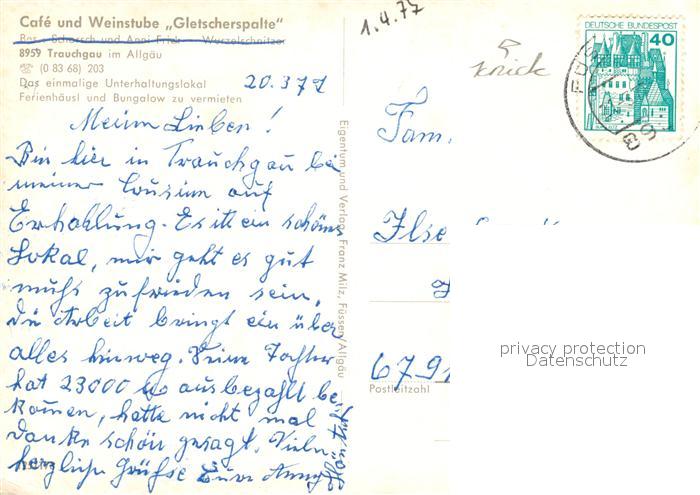 Café und Weinstube „Gletscherspalte“
Bes.: Schorsch und Anni Erick - Wurzelschnitzer
8959 Trauchgau im Allgäu
☎ (0 83 68) 203
Das einmalige Unterhaltungslokal
Ferienhäusl und Bungalow zu vermieten
20.3.77
Meine Lieben!
Bin hier in Trauchgau bei
meiner Cousine auf
Erhohlung. Es ist ein schönes
Lokal, mir geht es gut
muhs zufrieden sein,
die Arbeit bringt ein über
alles hinweg. Deine Tochter
hat 23000 ausbezahlt be
komen, hatte nicht mal
danke schön gesagt. Viele
herzliche Grüfse Eure Anny
Eigentum und Verlag: Franz Milz, Füssen/Allgäu
1.4.77
Knick
DEUTSCHE BUNDESPOST
40
Fam.
Ilse
679
Postleitzahl
privacy protection
Datenschutz